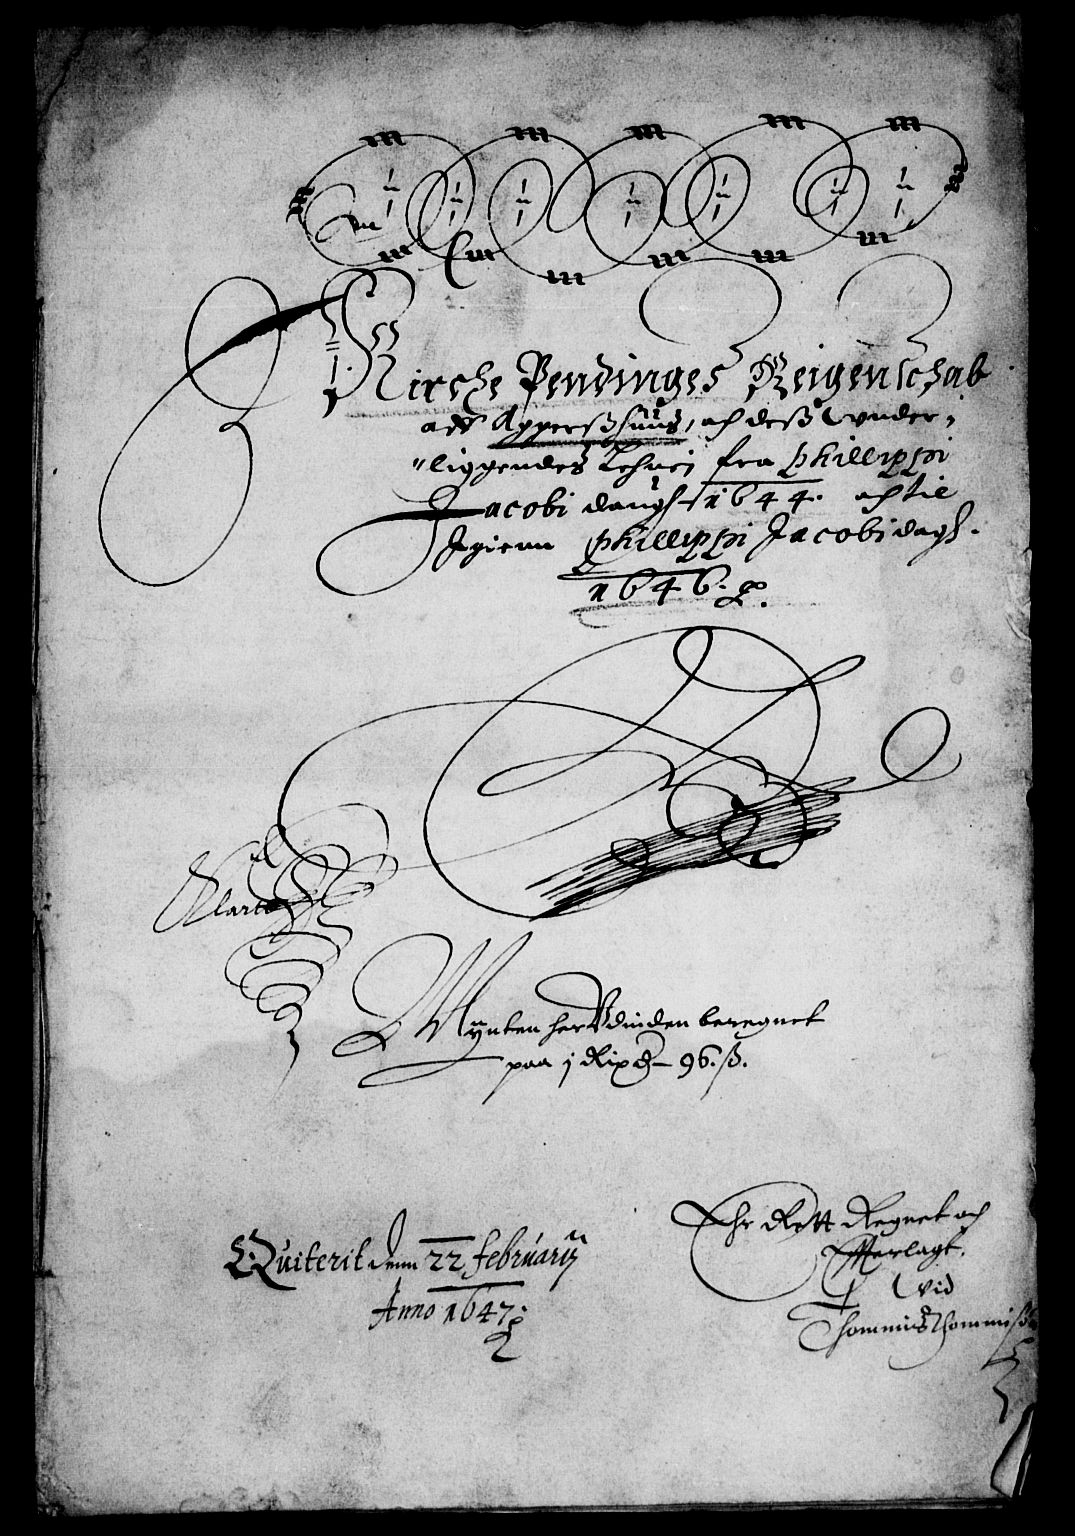 Kircke Pendinges Reigenschab
aff Aggerßhuus, och deß vnder-
liggendes Lehnej fra Phillippi
Jacobi daugh 1644. och til
Igienn Phillippi Jacobi dagh.
1646.
Klart
Mynten her Vdinden beregnet
paa j Rixdr 96. ß.
Quiterit denn 22 februarij
Anno 1647.
Ehr Rett Regnet och
Offuerlagt.
Vid
Thommis Thommiß